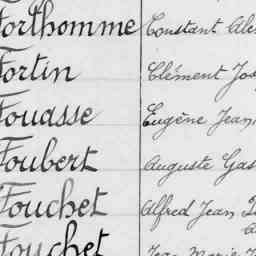 Forthomme Constant
Fortin Clément
Fouasse Eugène Jean
Foubert Auguste
Fouchet Alfred Jean
Fouchet Jean Marie